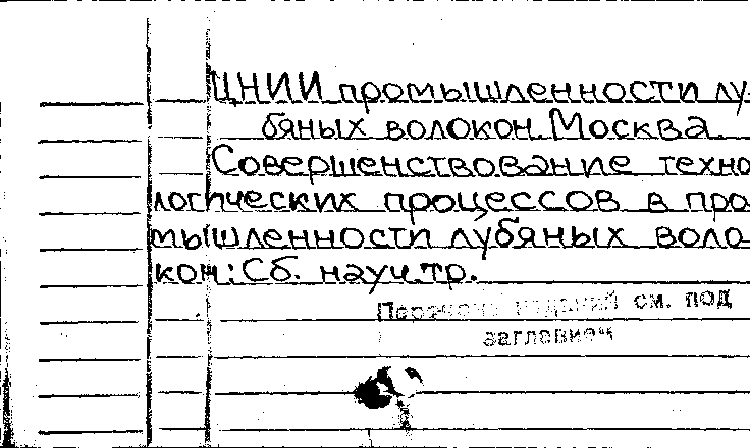 ЦНИИ промышленности лу-
бяных волокон. Москва.
Совершенствование техно
логических процессов в про
мышленности лубяных воло
кон: Сб. науч. тр.
Перечень изданий см. под
заглавием